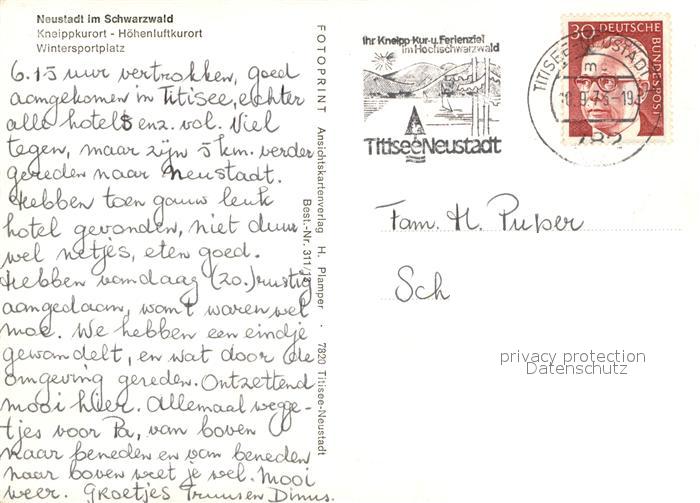 Neustadt im Schwarzwald
Kneippkurort - Höhenluftkurort
Wintersportplatz
6.15 uur vertrokken, goed
aangekomen in Titisee, echter
alle hotels enz. vol. Viel
tegen, maar zijn 5 km. verder
gereden naar Neustadt.
Hebben toen gauw leuk
hotel gevonden, niet duur
wel netjes, eten goed.
Hebben vandaag (20.) rustig
aangedaan, want waren wel
moe. We hebben een eindje
gewandelt, en wat door de
omgeving gereden. Ontzettend
mooi hier. Allemaal wegge-
tjes voor Pa, van boven
naar beneden en van beneden
naar boven weet je wel. Mooi
weer. Groetjes Truus en Dinus.
FOTOPRINT Ansichtskartenverlag H. Plamper · 7820 Titisee-Neustadt
Best.-Nr. 311/13
Ihr Kneipp-Kur-u. Ferienziel
im Hochschwarzwald
Titisee Neustadt
TITISEE-NEUSTADT
m
782
30
DEUTSCHE BUNDESPOST
Fam. H. Puper
Sch
privacy protection
Datenschutz